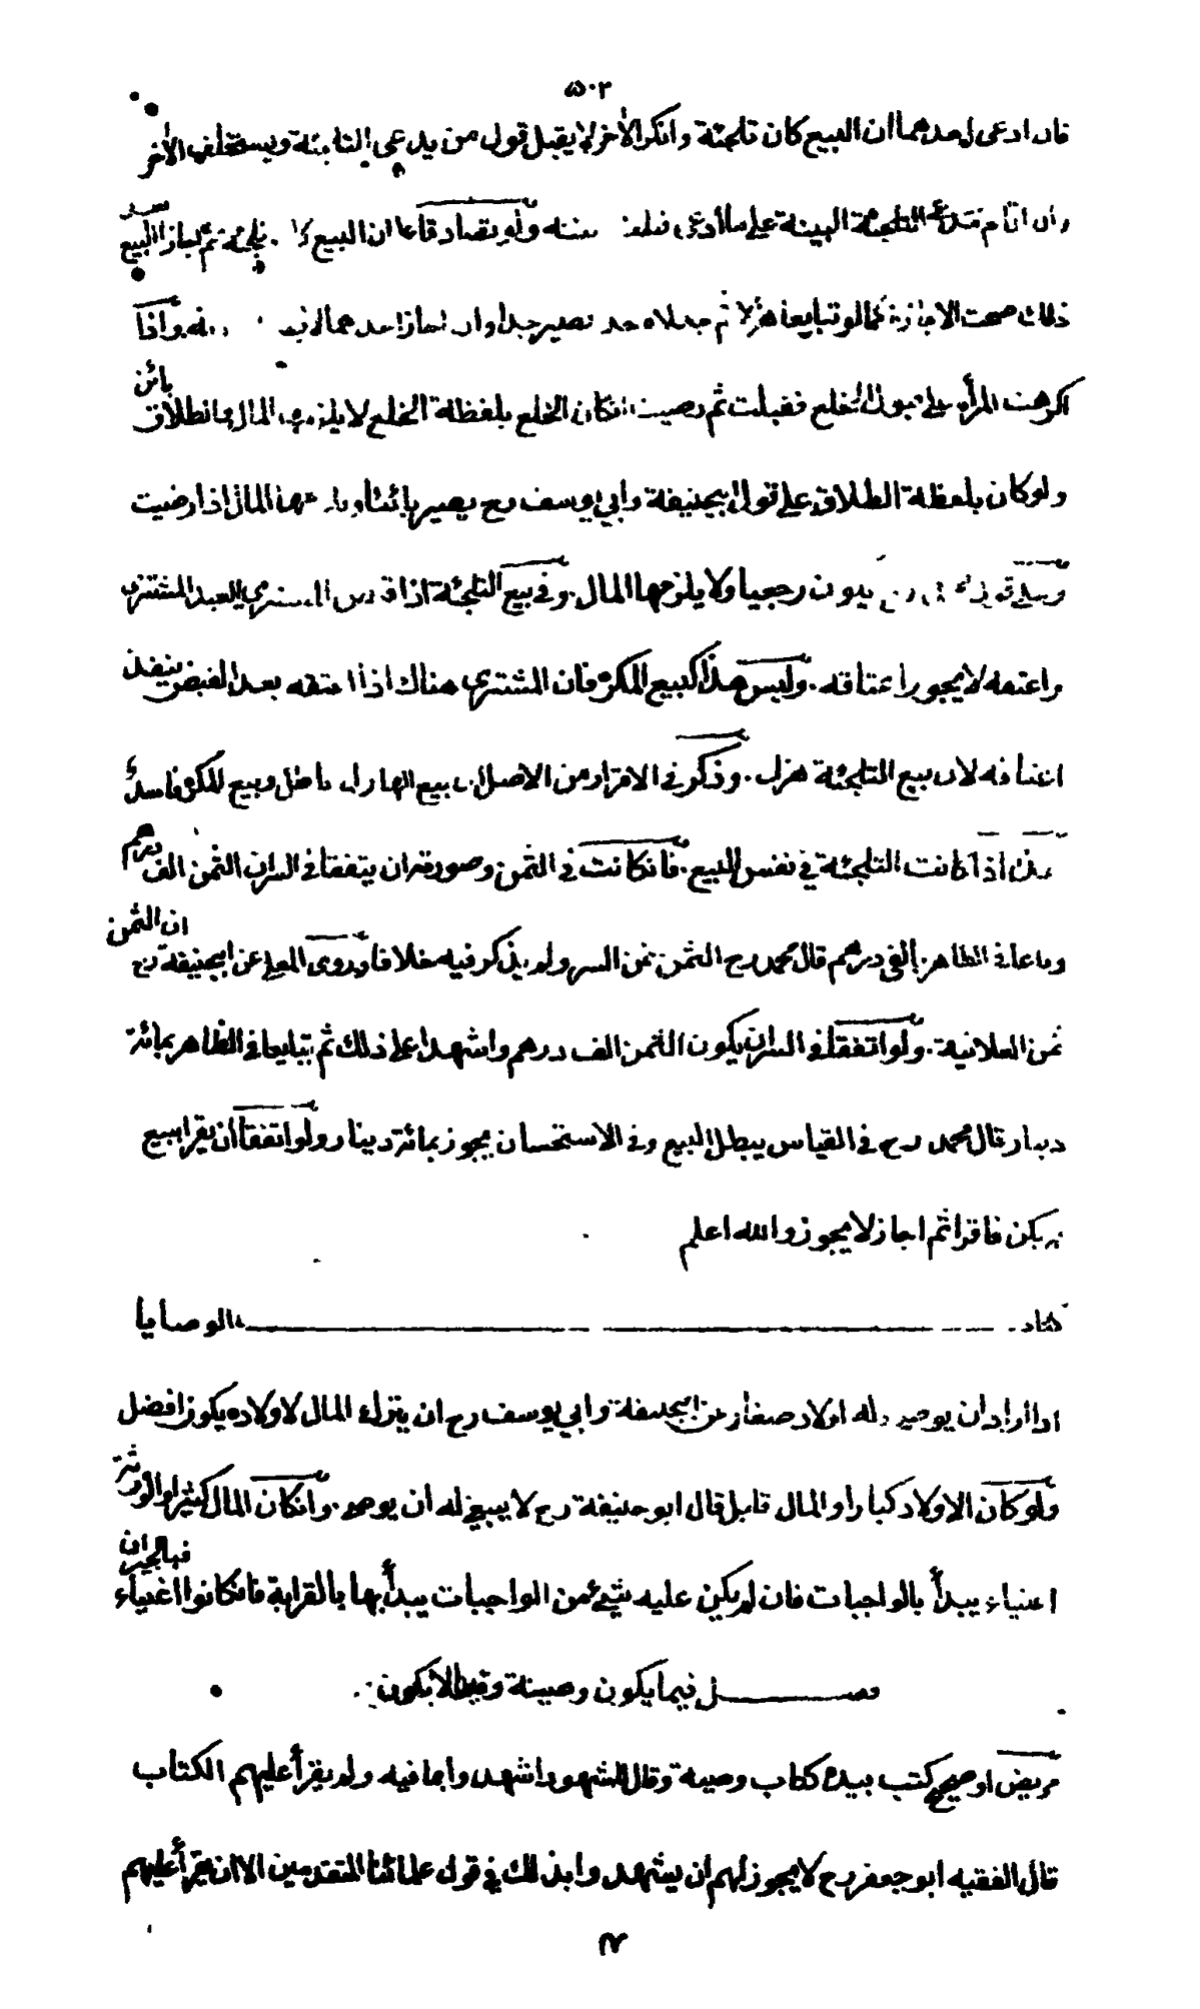 ٥٠٢
فان ادعى احدهما ان البيع كان تلجئة وانكر الآخر لا يقبل قول من يدعي التلجئة ويستحلف الآخر
وان اقام مدعي التلجئة البينة على ما ادعى بينته ولو تصادقا ان البيع تلجئة ثم اجاز البيع بعد
ذلك صحت الاجازة كما لو تبايعا هزلا ثم جعلاه يصير جدا وان اجاز احدهما واذا
اكرهت المرأة على قبول الخلع فقبلت ثم رضيت ان كان الخلع بلفظة الخلع لا يلزمها المال والطلاق بائن
ولو كان بلفظة الطلاق على قول ابيحنيفة وابي يوسف رح يصير بائنا المال اذا رضيت
يكون رجعيا ولا يلزمها المال . وفي بيع التلجئة اذا قبض المشتري العبد المشترى
واعتقه لا يجوز اعتاقه . وليس هذا كبيع المكره فان المشتري هناك اذا اعتقه بعد القبض ينفذ
اعتاقه لان بيع التلجئة هزل . وذكر في الاقرار من الاصل ان بيع الهازل باطل وبيع المكره فاسد
هذا اذا كانت التلجئة في نفس البيع . فان كانت في الثمن وصورته ان يتفقا في السر ان الثمن الف درهم
وتبايعا في الظاهر بالفي درهم قال محمد رح الثمن ثمن السر ولم يذكر فيه خلافا وروى المعلى عن ابيحنيفة رح ان الثمن
ثمن العلانية . ولو اتفقا في السر ان يكون الثمن الف درهم واشهدا على ذلك ثم تبايعا في الظاهر بمائة
دينار قال محمد رح في القياس يبطل البيع وفي الاستحسان يجوز بمائة دينار ولو اتفقا ان يقرا ببيع
لم يكن فاقرا ثم اجاز لا يجوز والله اعلم
كتاب الوصايا
اذا اراد ان يوصي وله اولاد صغار عن ابيحنيفة وابي يوسف رح ان يترك المال لاولاده يكون افضل
ولو كان الاولاد كبارا والمال قليل قال ابو حنيفة رح لا ينبغي له ان يوصي . وان كان المال كثيرا والورثة
اغنياء يبدأ بالواجبات فان لم يكن عليه شيء من الواجبات يبدأ بالقرابة فان كانوا اغنياء فبالجيران
فصل فيما يكون وصية وفيما لا يكون
مريض او صحيح كتب بيده كتاب وصية وقال للشهود اشهدوا بما فيه ولم يقرأ عليهم الكتاب
قال الفقيه ابو جعفر رح لا يجوز لهم ان يشهدوا بذلك في قول علمائنا المتقدمين الا ان يقرأ عليهم